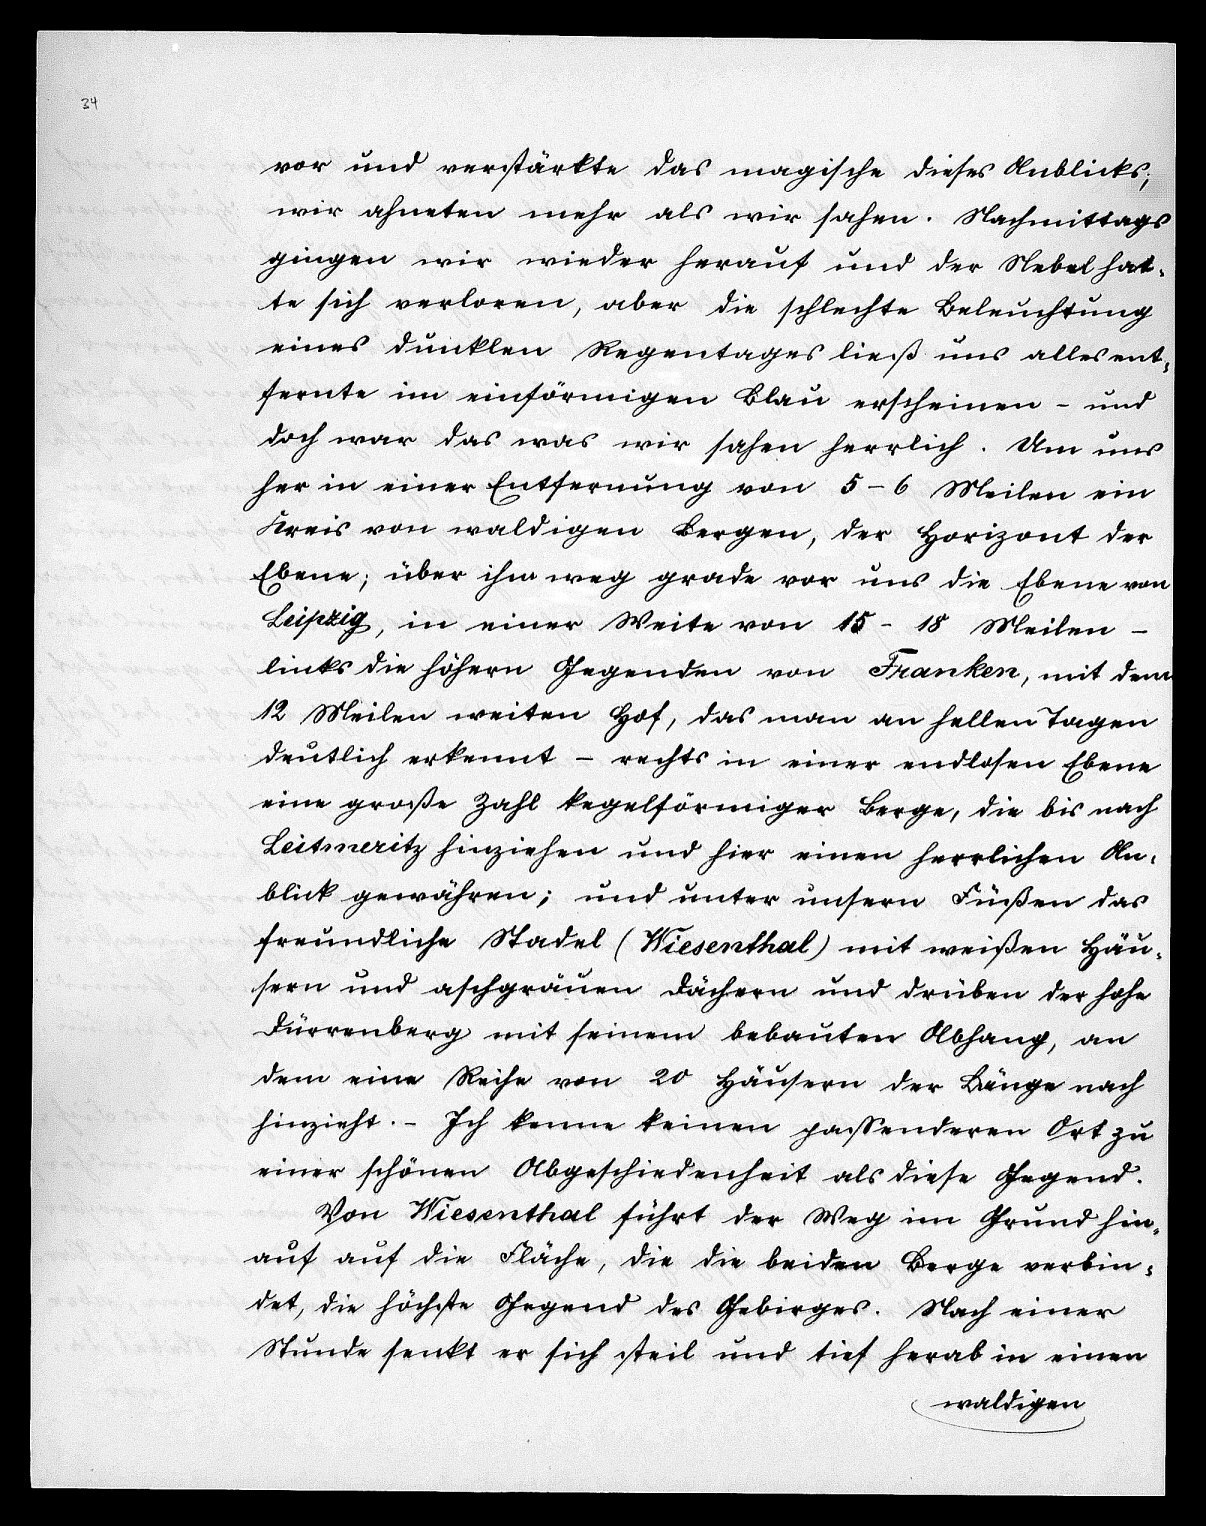 34
vor und verstärkte das magische dieses Anblicks;
wir ahneten mehr als wir sahen. Nachmittags
gingen wir wieder herauf und der Nebel hat-
te sich verloren, aber die schlechte Beleuchtung
eines dunklen Regentages ließ uns alles ent-
fernte im einförmigen Blau erscheinen – und
doch war das was wir sahen herrlich. Um uns
her in einer Entfernung von 5–6 Meilen ein
Kreis von waldigen Bergen, der Horizont der
Ebene; über ihm weg grade vor uns die Ebene von
Leipzig, in einer Weite von 15 – 18 Meilen –
links die höhern Gegenden von Franken, mit dem
12 Meilen weiten Hof, das man an hellen Tagen
deutlich erkennt – rechts in einer endlosen Ebene
eine große Zahl kegelförmiger Berge, die bis nach
Leitmeritz hinziehen und hier einen herrlichen An-
blick gewähren; und unter unsern Füßen das
freundliche Stadel (Wiesenthal) mit weißen Häu-
sern und aschgräuen Dächern und drüben der hohe
Dürrenberg mit seinem bebauten Abhang, an
dem eine Reihe von 20 Häusern der Länge nach
hinzieht. – Ich kenne keinen passenderen Ort zu
einer schönen Abgeschiedenheit als diese Gegend.
Von Wiesenthal führt der Weg im Grund hin-
auf auf die Fläche, die die beiden Berge verbin-
det, die höchste Gegend des Gebirges. Nach einer
Stunde senkt er sich steil und tief herab in einen
waldigen